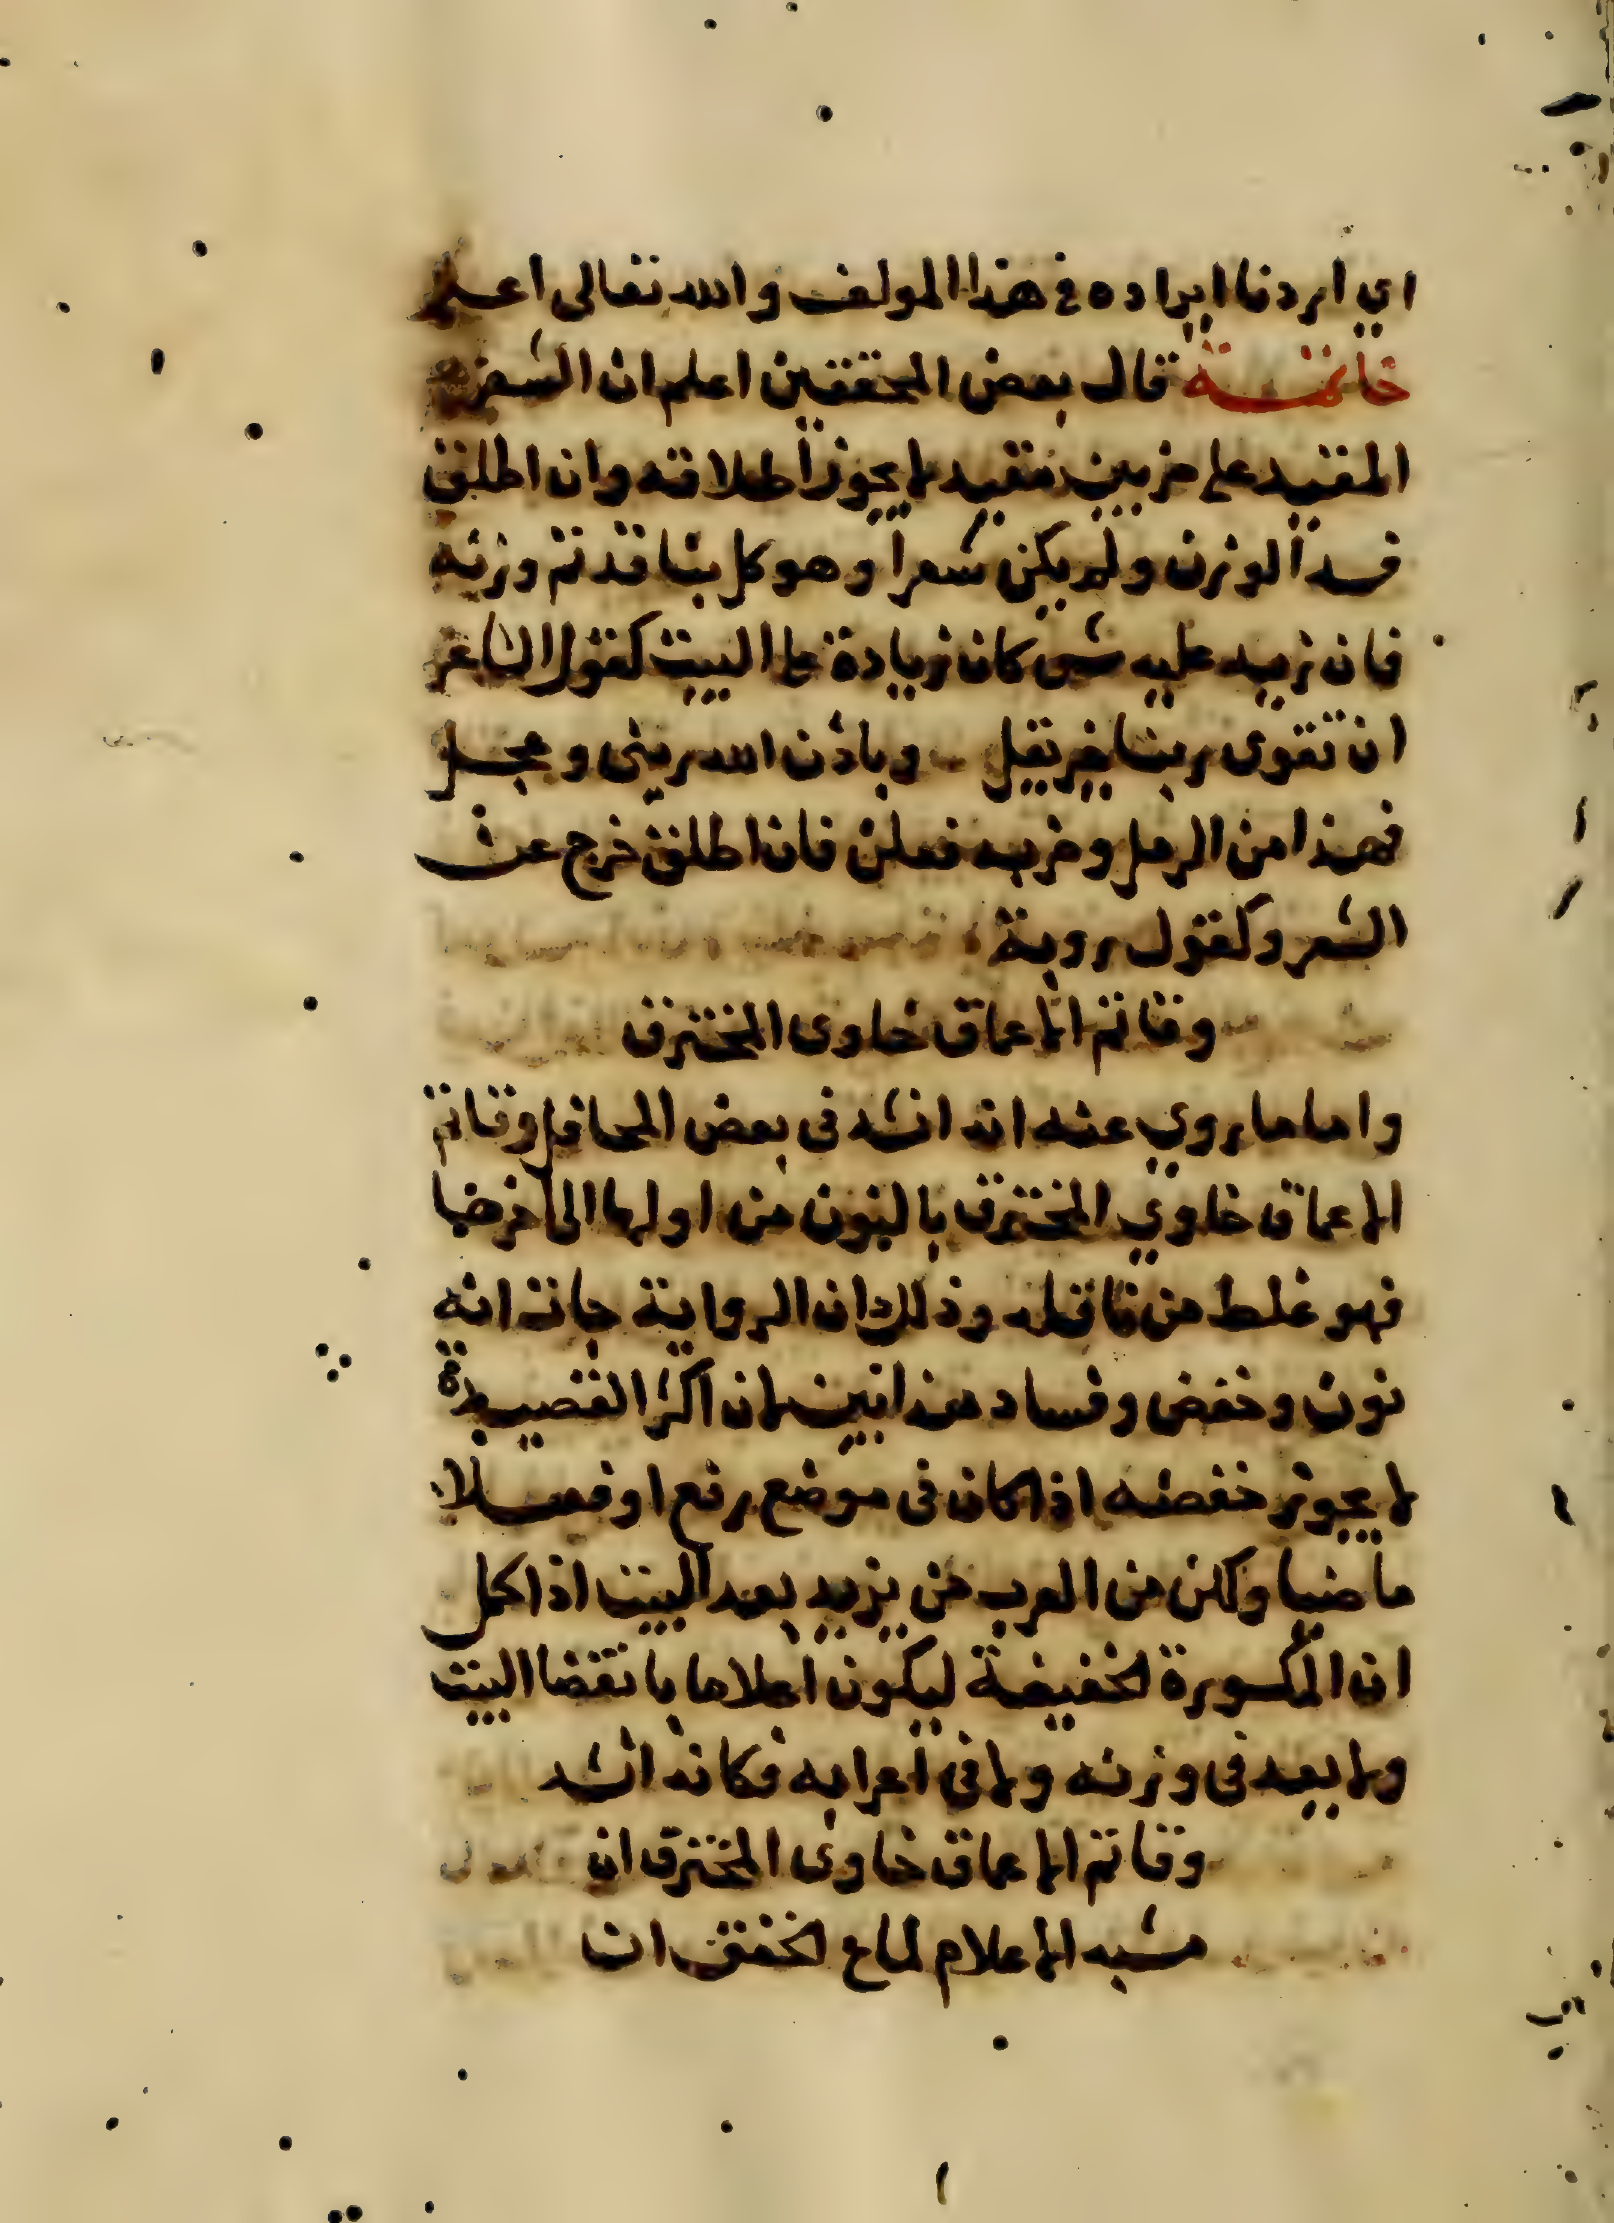 اي اردنا ايراده في هذا المولف والله تعالى اعلم
خاتمة قال بعض المحققين اعلم ان الشعر
المقيد على ضربين مقيد لا يجوز اطلاقه وان اطلق
فسد الوزن ولم يكن شعرا وهو كل بنا قد تم وزنه
فان زيد عليه شي كان زيادة على البيت كقول الشاعر
ان تقوى ربنا خير نفل وباذن الله ريثى وعجل
فهذا من الرمل وضربه فعلن فان اطلق خرج عن
الشعر وكقول روبة
وقاتم الاعماق خاوى المخترق
واما ما روي عنه انه انشد في بعض المحافل وقاتم
الاعماق خاوي المخترق بالنون من اولها الى اخرها
فهو غلط من ناقله وذلك ان الرواية جات انه
نون وخفض وفساد هذا بين لان اكثر القصيدة
لا يجوز خفضه اذا كان في موضع رفع او فعلا
ماضيا ولكن من العرب من يزيد بعد البيت اذا كمل
ان المكسورة الخفيفة ليكون اعلاما بانقضا البيت
ولا يعد في وزنه ولا في اعرابه فكانه انشد
وقاتم الاعماق خاوى المخترق ان
مشبه الاعلام لماع الخفق ان